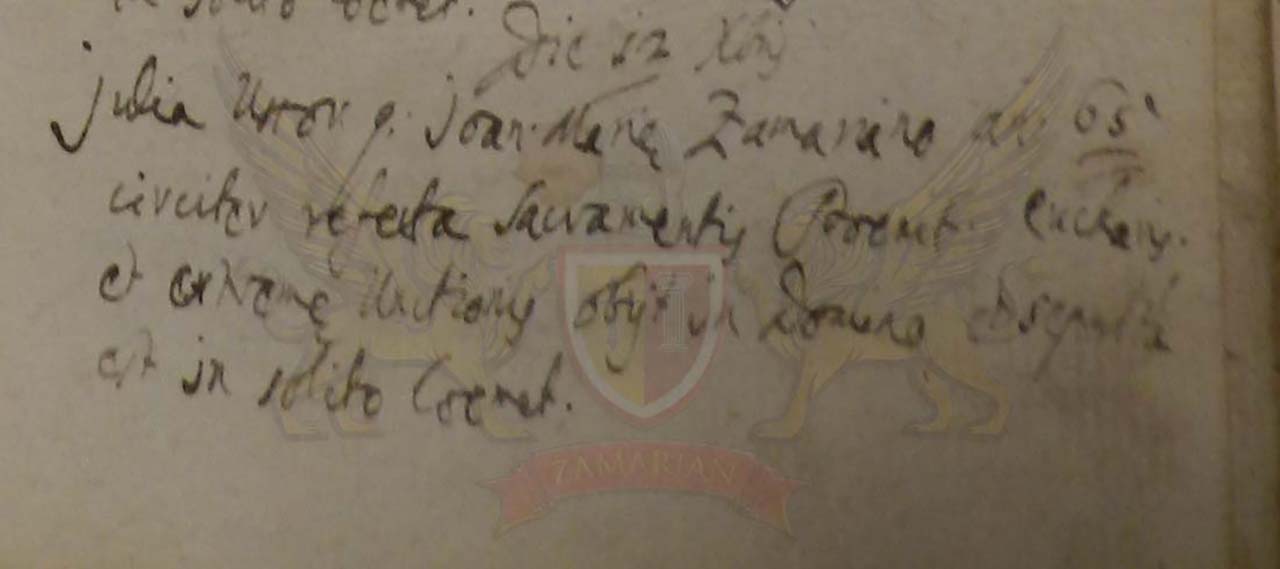 in solito Coemet.
Die 12 Xbrj
Julia Uxor q. Joan. Mariȩ Zamariano an. 65
circiter refecta Sacramentij Poenit. Eucharis.
et extremȩ Unctionij obijt in Domino et sepulta
est in solito Coemet.
ZAMARIAN